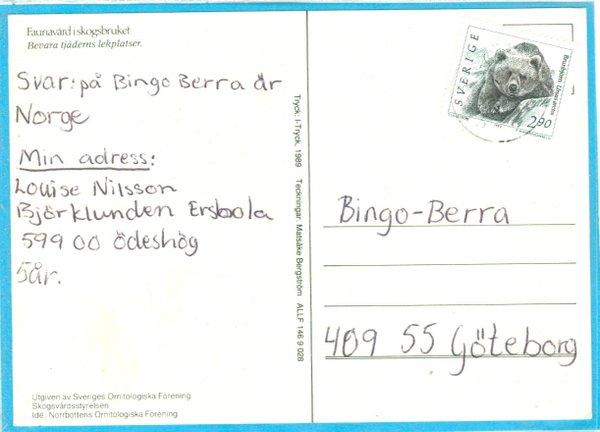 Faunavård i skogsbruket
Bevara tjäderns lekplatser.
Svar: på Bingo Berra är
Norge
Min adress:
Louise Nilsson
Björklunden Ersbola
599 00 Ödeshög
5år.
Utgiven av Sveriges Ornitologiska Förening
Skogsvårdsstyrelsen
Idé: Norrbottens Ornitologiska Förening
Tryck: I-Tryck, 1989 Teckningar: Matsåke Bergström ALLF 146 9 028
SVERIGE
Brunbjörn Ursus arctos
2.90
Bingo-Berra
409 55 Göteborg